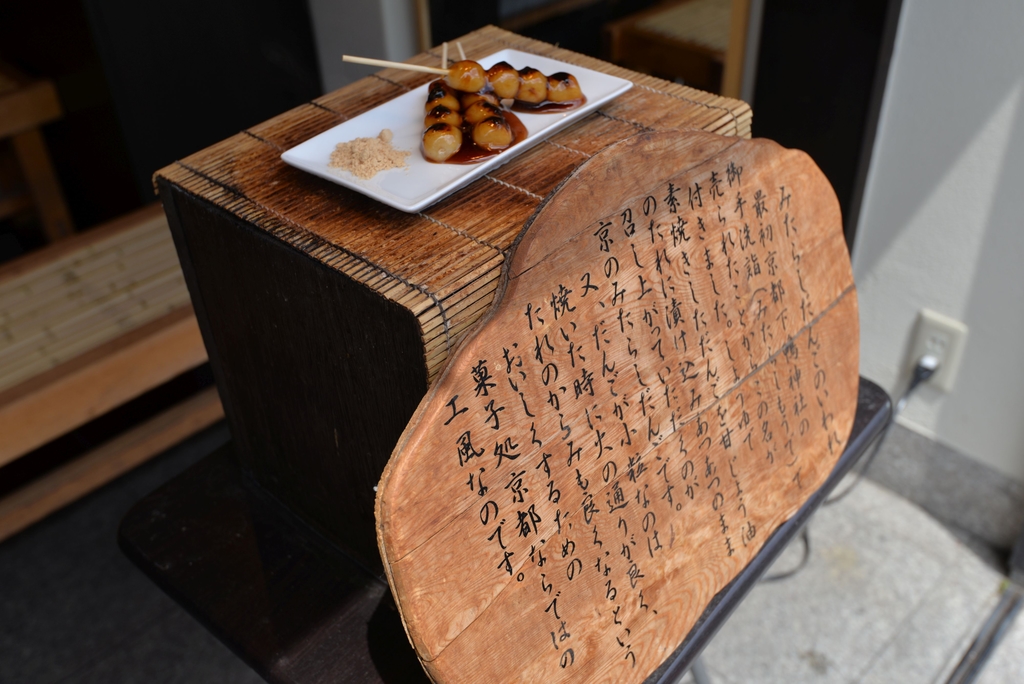 みたらしだんごのいわれ
最初京都下鴨神社の
御手洗詣(みたらしもうで)で
売られたことからこの名が
付きました。しろくゆで
素焼きしただんごを甘じょう油
のたれに漬け込みあつあつのまま
召し上がっていただくのが
京のみたらしだんごです。
又、だんごが小粒なのは
焼いた時に火の通りが良く、
たれのからみも良くなるという
おいしくするための
菓子処京都ならではの
工風なのです。